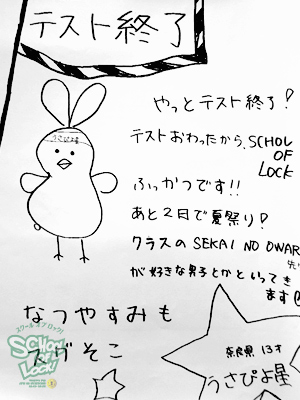 テスト終了
やっとテスト終了!
テストおわったから、SCHOL
OF
LOCK
ふっかつです!!
あと2日で夏祭り!
クラスのSEKAI NO OWAR
が好きな男子とかといってき
ます
なつやすみも
スグそこ
スクールオブロック!
SCHOOL
OF
LOCK!
奈良県 13才
うさぴよ星